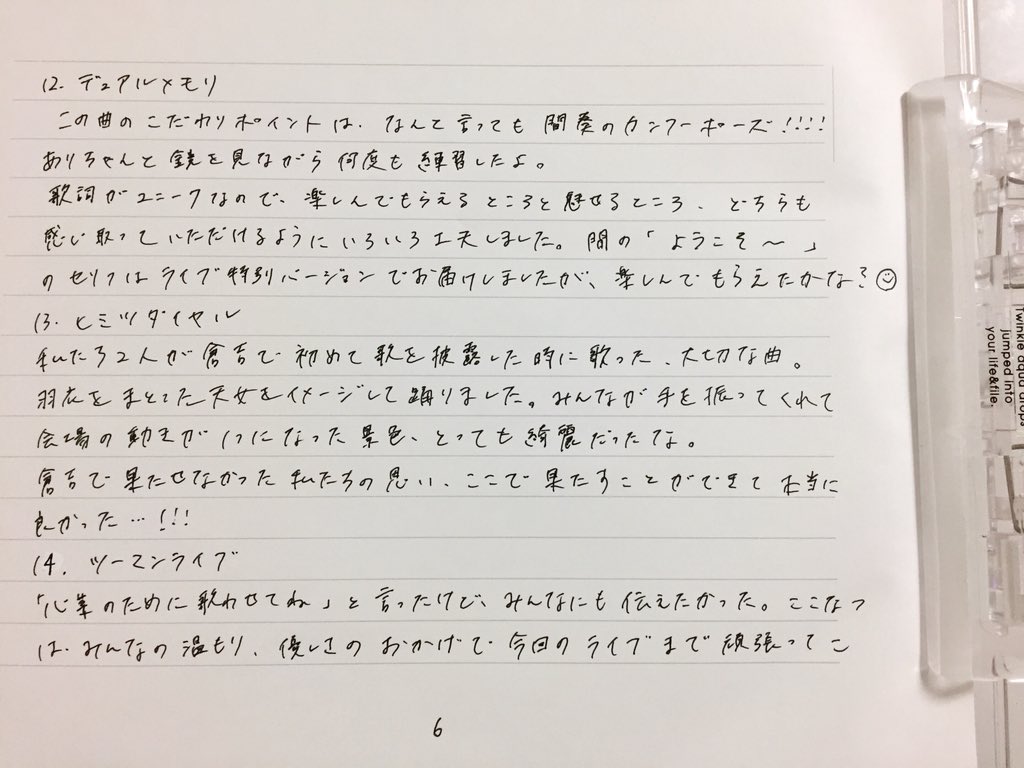 12. デュアルメモリ
この曲のこだわりポイントは、なんて言っても間奏のカンフーポーズ!!!!
ありちゃんと鏡を見ながら何度も練習したよ。
歌詞がユニークなので、楽しんでもらえるところと魅せるところ、どちらも
感じ取っていただけるようにいろいろ工夫しました。間の「ようこそ〜」
のセリフはライブ特別バージョンでお届けしましたが、楽しんでもらえたかな?☺
13. ヒミツダイヤル
私たち2人が倉吉で初めて歌を披露した時に歌った、大切な曲。
羽衣をまとった天女をイメージして踊りました。みんなが手を振ってくれて
会場の動きが1つになった景色、とっても綺麗だったな。
倉吉で果たせなかった私たちの思い、ここで果たすことができて本当に
良かった…!!!
14. ツーマンライブ
「心菜のために歌わせてね」と言ったけど、みんなにも伝えたかった。ここなつ
は、みんなの温もり、優しさのおかげで今回のライブまで頑張ってこ
6
Twinkle aqua drops
jumped into
your life&file.